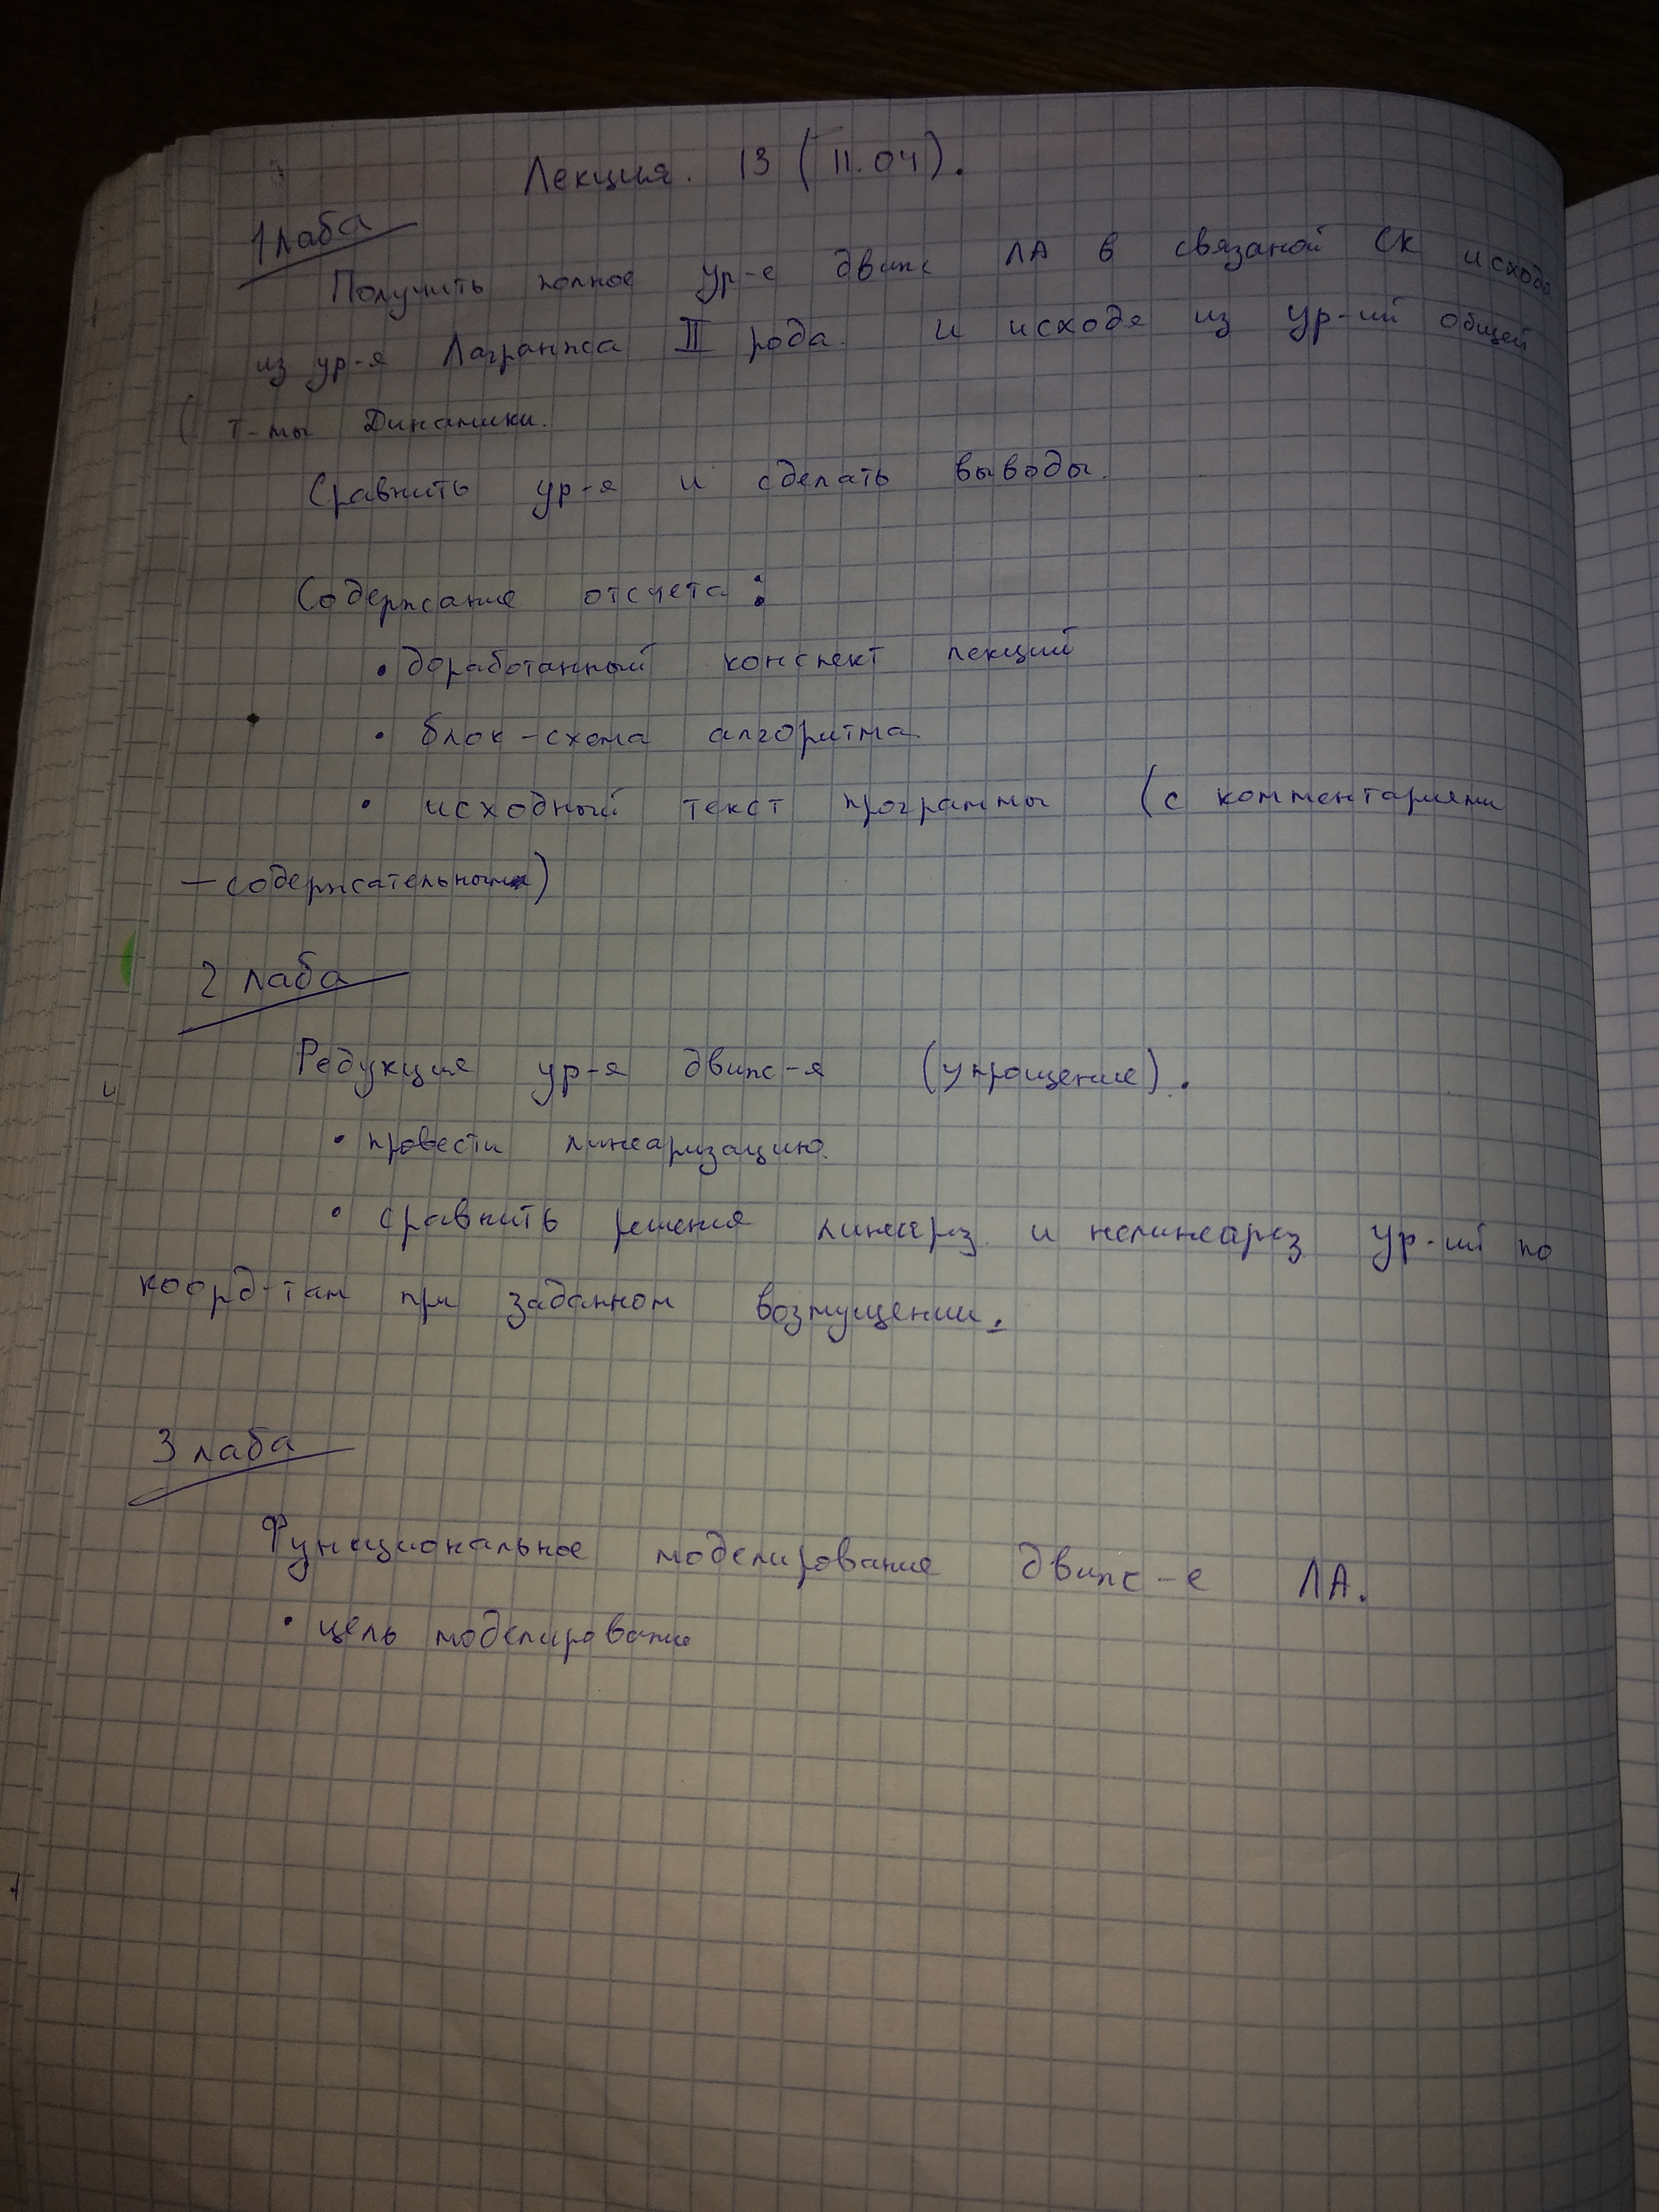 Лекция. 13 (11.04).
1 лаба
Получить полное ур-е движ ЛА в связаной СК исходя
из ур-я Лагранжа II рода и исходя из ур-ий общей
т-мы Динамики.
Сравнить ур-я и сделать выводы.
Содержание отсчета:
• доработанный конспект лекций
• блок-схема алгоритма
• исходный текст программы (с комментариями
– содержательными)
2 лаба
Редукция ур-я движ-я (упрощение).
• провести линеаризацию.
• сравнить решения линеарз. и нелинеарз ур-ий по
коорд-там при заданном возмущении.
3 лаба
Функциональное моделирование движ-е ЛА.
• цель моделирование